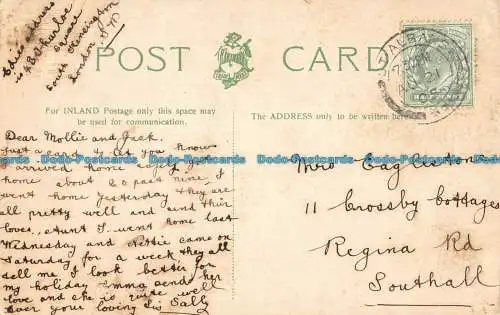 Elsie's address
is 48 Thurloe
Square
South Kensington
London S.W
POST CARD
For INLAND Postage only this space may
be used for communication.
The ADDRESS only to be written here.
Dear Mollie and Jack.
Just a card to let you know
I arrived home safely got
home about 20 past nine, I
went home yesterday they are
all pretty well and send their
loves, Aunt J. went home last
Wednesday and Hettie came on
Saturday for a week, they all
tell me I look better for
my holiday Emma sends her
love and she is quite well
ever your loving Sis Sally
Mrs Eagleston
11 Crossby Cottages
Regina Rd
Southall
Dodo-Postcards Dodo-Postcards Dodo-Postcards Dodo-Postcards